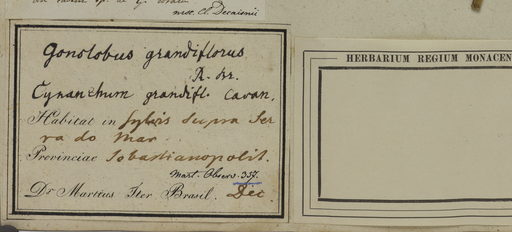 msc. Cl. Decaisnii
Gonolobus grandiflorus
R. Br.
Cynanchum grandifl. Cavan.
Habitat in sylvis supra Ser
ra do Mar.
Provinciae Sebastianopolit.
Mart. Observ. 357.
Dr Martius Iter Brasil. Dec
HERBARIUM REGIUM MONACEN